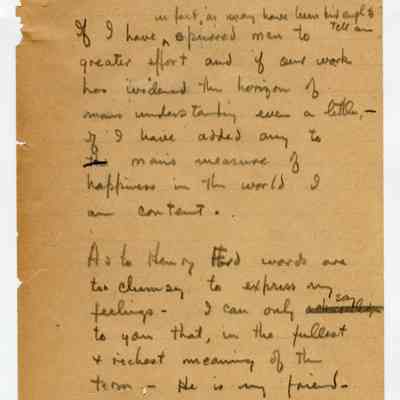 in fact, as many have been kind enough to
tell me
If I have, spurred men to
greater effort and if our work
has widened the horizon of
mans understanding even a little, -
if I have added any to
mans measure of
happiness in the world I
am content.
As to Henry Ford words are
too clumsy to express my
feelings - I can only
say
to you that, in the fullest
& richest meaning of the
term - He is my friend -